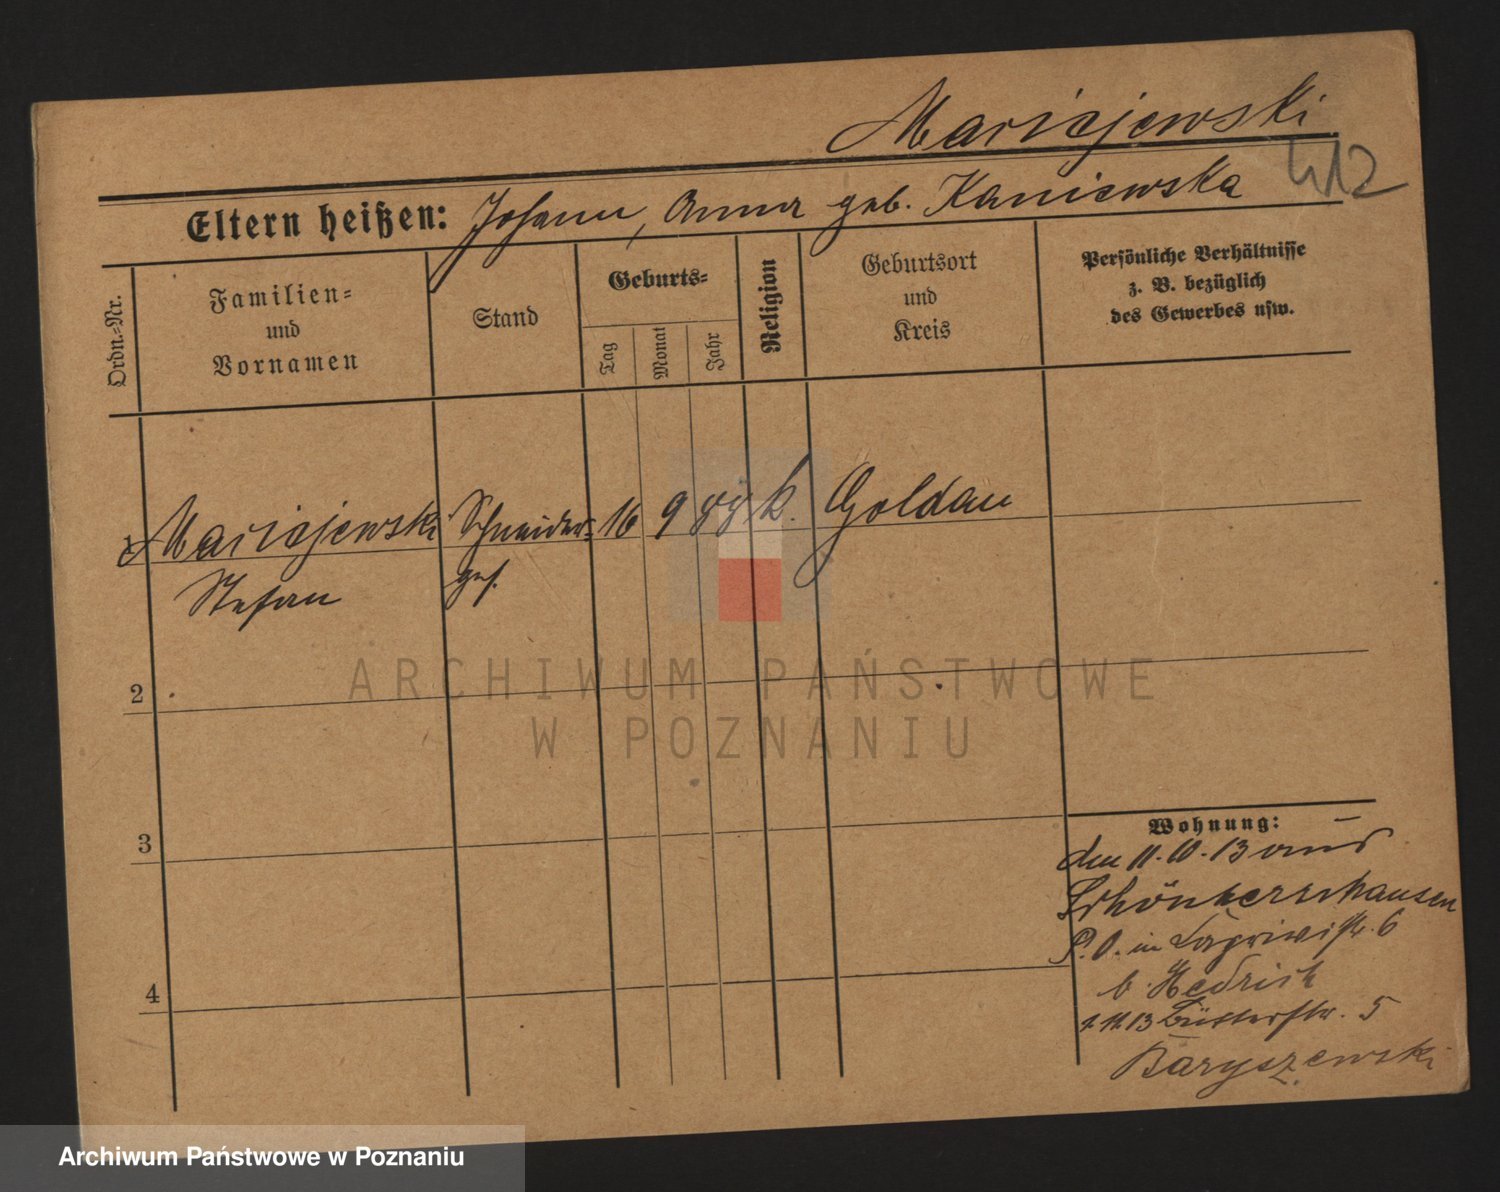 Maricjewski
412
Eltern heißen: Johann, Anna geb. Kaniewska
Ordn.-Nr.
Familien-
und
Vornamen
Stand
Geburts-
Tag
Monat
Jahr
Religion
Geburtsort
und
Kreis
Persönliche Verhältnisse
z. B. bezüglich
des Gewerbes usw.
1 Maricjewski Schneider- 16 9 88 k. Goldau
Stefan ges.
2
3
4
Wohnung:
den 11.10.13 aus
Schönhershausen
P. O. in 6
b. Hedrich
1.11.13 Büttelstr. 5
Baryszewski
ARCHIWUM PAŃSTWOWE
W POZNANIU
Archiwum Państwowe w Poznaniu